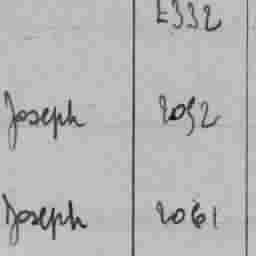 Joseph 2052
Joseph 2061